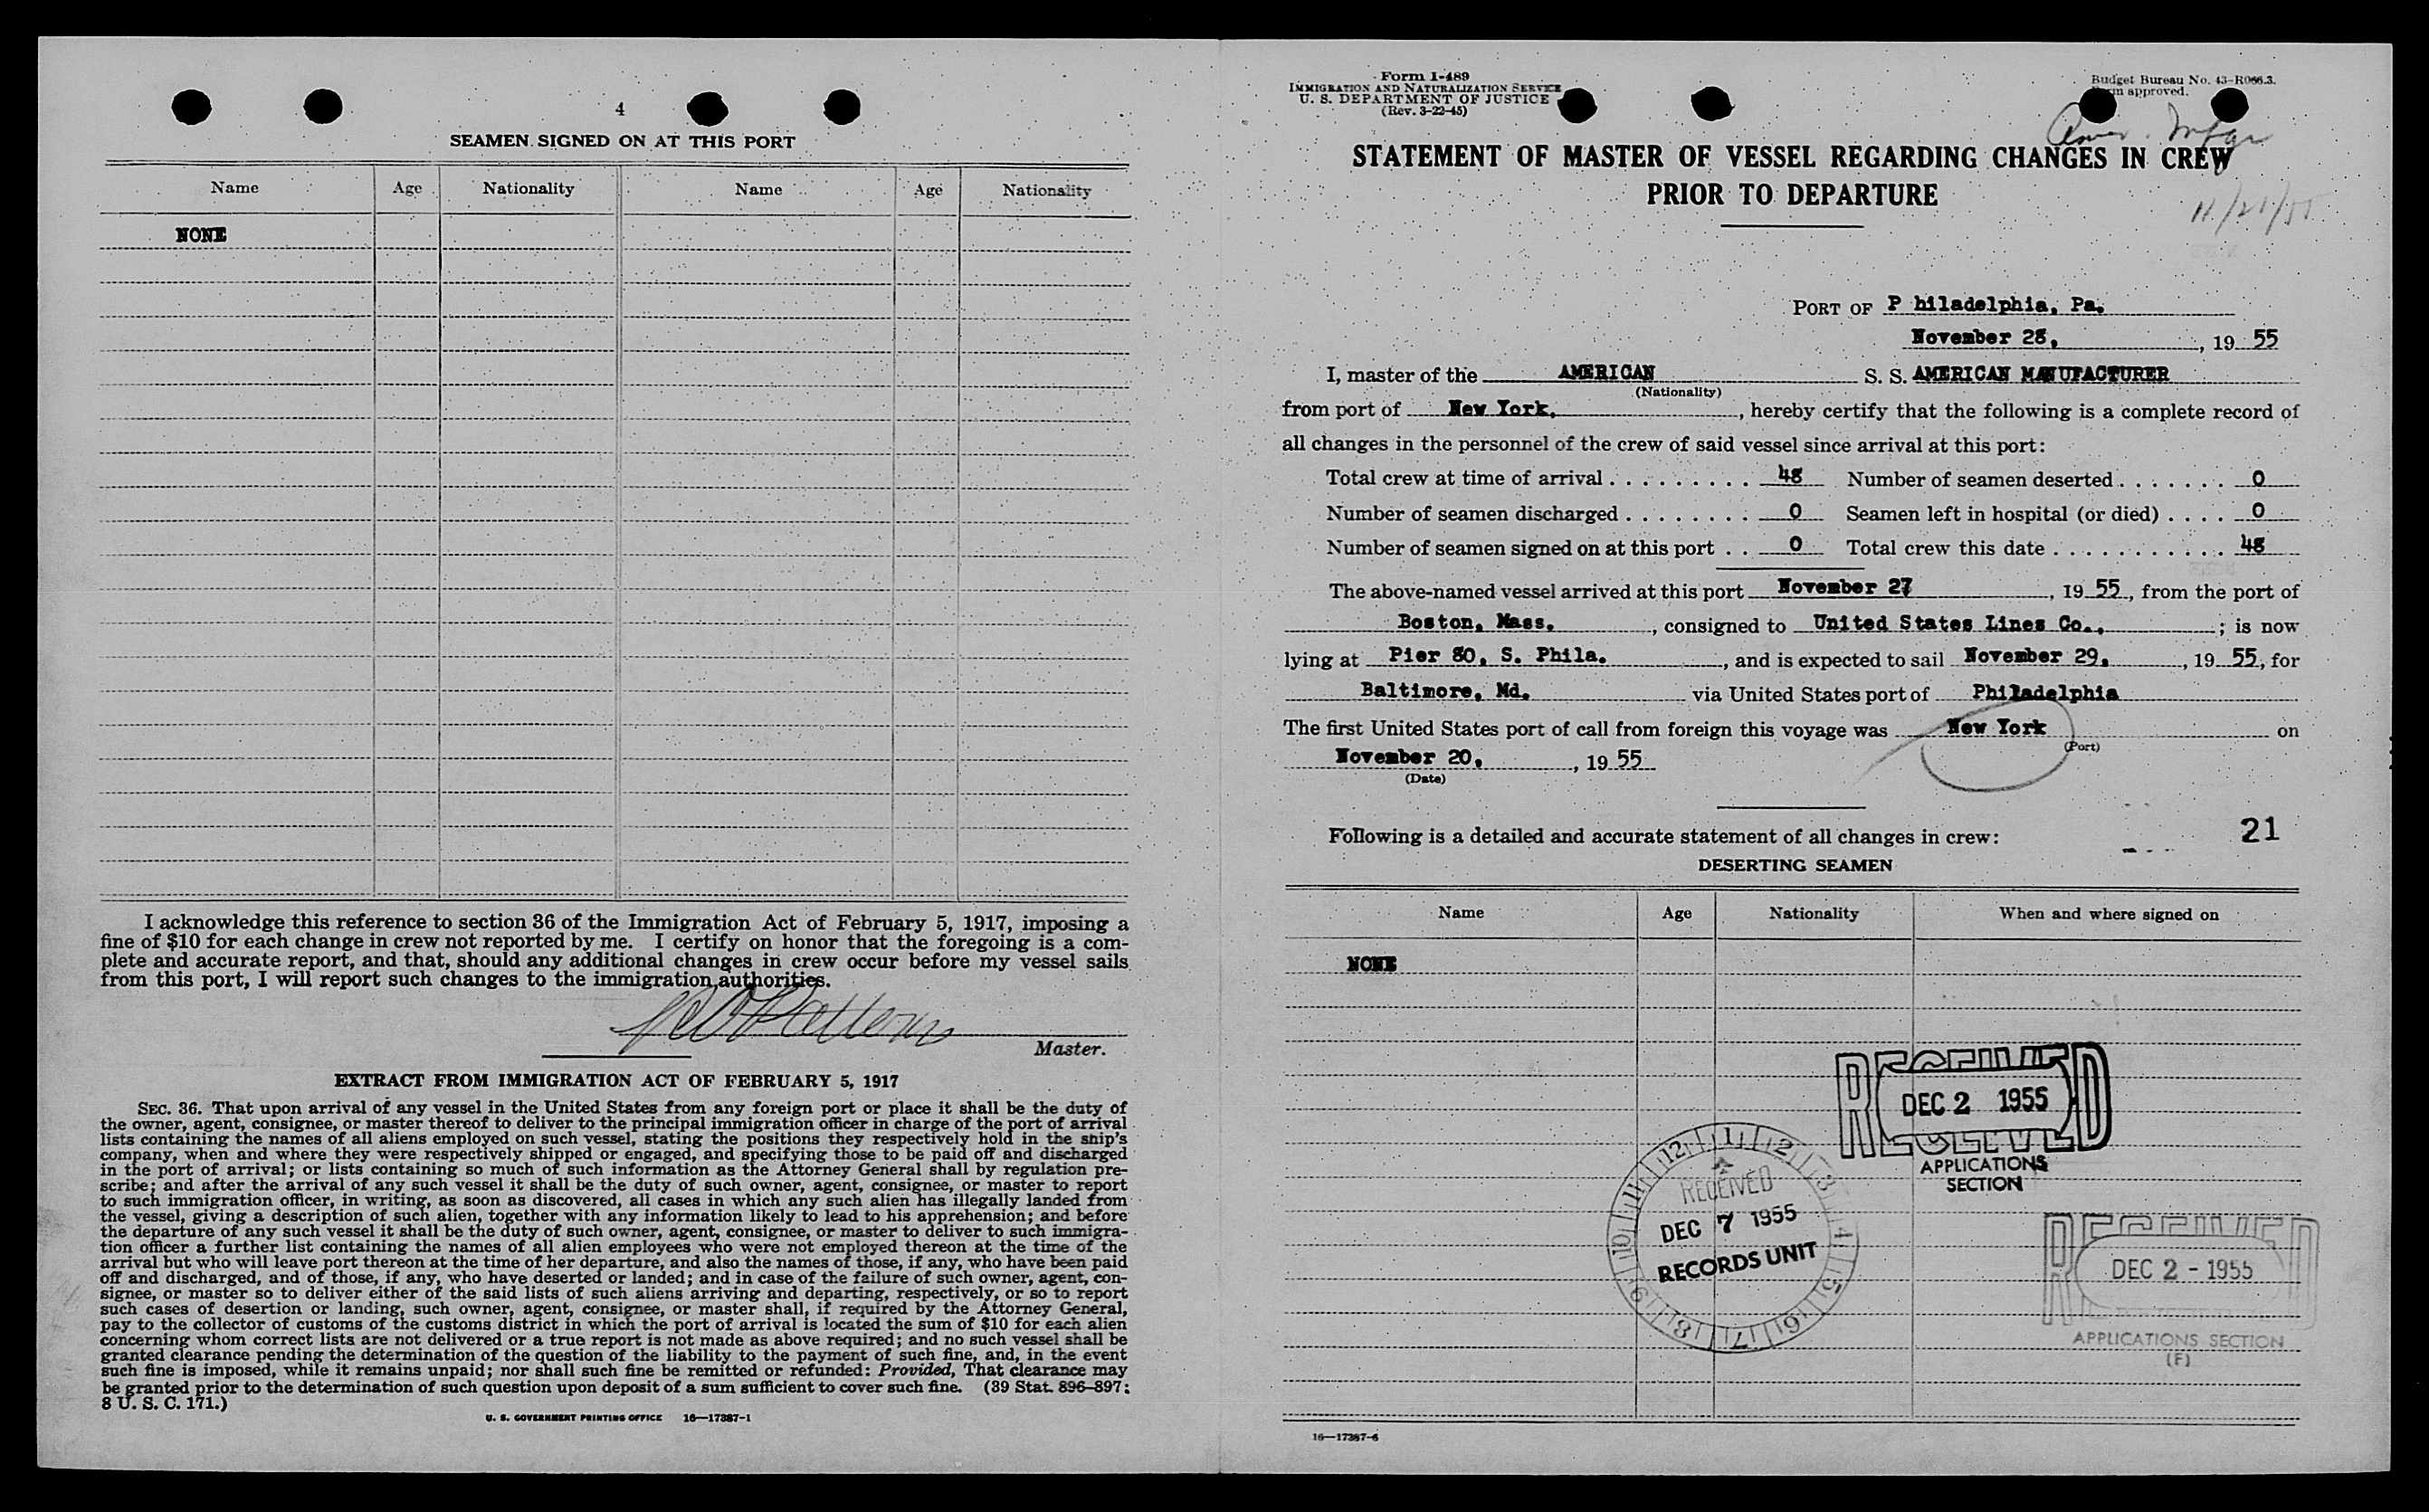 4
SEAMEN SIGNED ON AT THIS PORT
Name Age Nationality Name Age Nationality
NONE
I acknowledge this reference to section 36 of the Immigration Act of February 5, 1917, imposing a
fine of $10 for each change in crew not reported by me. I certify on honor that the foregoing is a com-
plete and accurate report, and that, should any additional changes in crew occur before my vessel sails
from this port, I will report such changes to the immigration authorities.
Master.
EXTRACT FROM IMMIGRATION ACT OF FEBRUARY 5, 1917
SEC. 36. That upon arrival of any vessel in the United States from any foreign port or place it shall be the duty of
the owner, agent, consignee, or master thereof to deliver to the principal immigration officer in charge of the port of arrival
lists containing the names of all aliens employed on such vessel, stating the positions they respectively hold in the ship's
company, when and where they were respectively shipped or engaged, and specifying those to be paid off and discharged
in the port of arrival; or lists containing so much of such information as the Attorney General shall by regulation pre-
scribe; and after the arrival of any such vessel it shall be the duty of such owner, agent, consignee, or master to report
to such immigration officer, in writing, as soon as discovered, all cases in which any such alien has illegally landed from
the vessel, giving a description of such alien, together with any information likely to lead to his apprehension; and before
the departure of any such vessel it shall be the duty of such owner, agent, consignee, or master to deliver to such immigra-
tion officer a further list containing the names of all alien employees who were not employed thereon at the time of the
arrival but who will leave port thereon at the time of her departure, and also the names of those, if any, who have been paid
off and discharged, and of those, if any, who have deserted or landed; and in case of the failure of such owner, agent, con-
signee, or master so to deliver either of the said lists of such aliens arriving and departing, respectively, or so to report
such cases of desertion or landing, such owner, agent, consignee, or master shall, if required by the Attorney General,
pay to the collector of customs of the customs district in which the port of arrival is located the sum of $10 for each alien
concerning whom correct lists are not delivered or a true report is not made as above required; and no such vessel shall be
granted clearance pending the determination of the question of the liability to the payment of such fine, and, in the event
such fine is imposed, while it remains unpaid; nor shall such fine be remitted or refunded: Provided, That clearance may
be granted prior to the determination of such question upon deposit of a sum sufficient to cover such fine. (39 Stat. 896–897;
8 U. S. C. 171.)
U. S. GOVERNMENT PRINTING OFFICE 16—17387-1
Form I-489
IMMIGRATION AND NATURALIZATION SERVICE
U. S. DEPARTMENT OF JUSTICE
(Rev. 3-22-45)
Budget Bureau No. 43-R066.3.
approved.
Amer. Mfar
STATEMENT OF MASTER OF VESSEL REGARDING CHANGES IN CREW
PRIOR TO DEPARTURE
PORT OF P hiladelphia, Pa.
November 28, , 19 55
I, master of the AMERICAN S. S. AMERICAN MANUFACTURER
(Nationality)
from port of New York, , hereby certify that the following is a complete record of
all changes in the personnel of the crew of said vessel since arrival at this port:
Total crew at time of arrival . . . . . . . . . 48 Number of seamen deserted . . . . . . . 0
Number of seamen discharged . . . . . . . . 0 Seamen left in hospital (or died) . . . . 0
Number of seamen signed on at this port . . 0 Total crew this date . . . . . . . . . . . 48
The above-named vessel arrived at this port November 27 , 19 55, from the port of
Boston, Mass. , consigned to United States Lines Co., ; is now
lying at Pier 80, S. Phila. , and is expected to sail November 29, , 19 55, for
Baltimore, Md. via United States port of Philadelphia
The first United States port of call from foreign this voyage was New York on
(Port)
November 20, , 19 55
(Date)
Following is a detailed and accurate statement of all changes in crew:
21
DESERTING SEAMEN
Name Age Nationality When and where signed on
NONE
RECEIVED
DEC 2 1955
RECEIVED
APPLICATIONS
SECTION
12 1 2 3 4 5 6 7 8 9 10 11
RECEIVED
DEC 7 1955
RECORDS UNIT
RECEIVED
DEC 2 - 1955
APPLICATIONS SECTION
(F)
16—17387-6